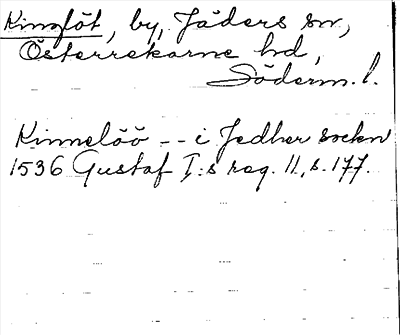 Kinslöt, by, Jäders sn,
Österrekarne hd,
Söderm. l.
Kinnelöö -- i Jedher sockn
1536 Gustaf I:s reg. 11, s. 177.